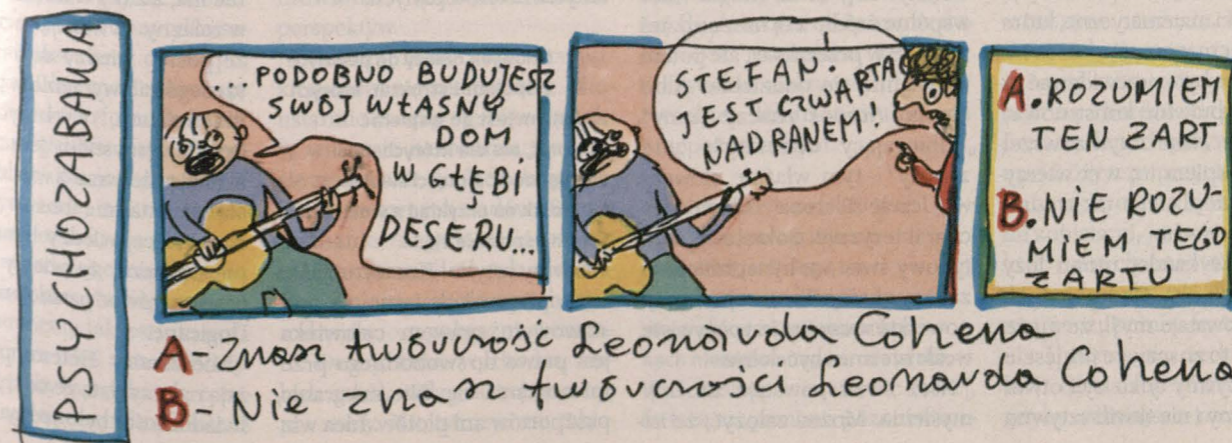 PSYCHOZABAWA
...PODOBNO BUDUJESZ
SWÓJ WŁASNY
DOM
W GŁĘBI
DESERU...
STEFAN.
JEST CZWARTA
NAD RANEM!
A. ROZUMIEM
TEN ŻART
B. NIE ROZU-
MIEM TEGO
ŻARTU
A - Znasz twórczość Leonarda Cohena
B - Nie znasz twórczości Leonarda Cohena